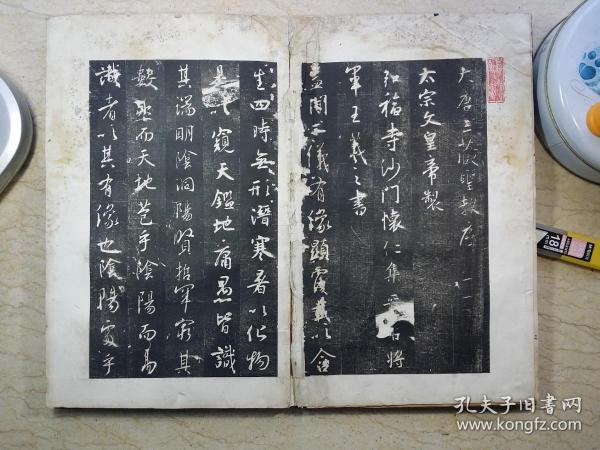 大唐三藏聖教序
太宗文皇帝製
弘福寺沙門懷仁集晉右將
軍王羲之書
蓋聞二儀有像顯覆載以含
生四時無形潛寒暑以化物
是以窺天鑑地庸愚皆識
其端明陰洞陽賢哲罕窮其
數然而天地苞乎陰陽而易
識者以其有像也陰陽處乎
18
孔夫子旧书网
www.kongfz.com